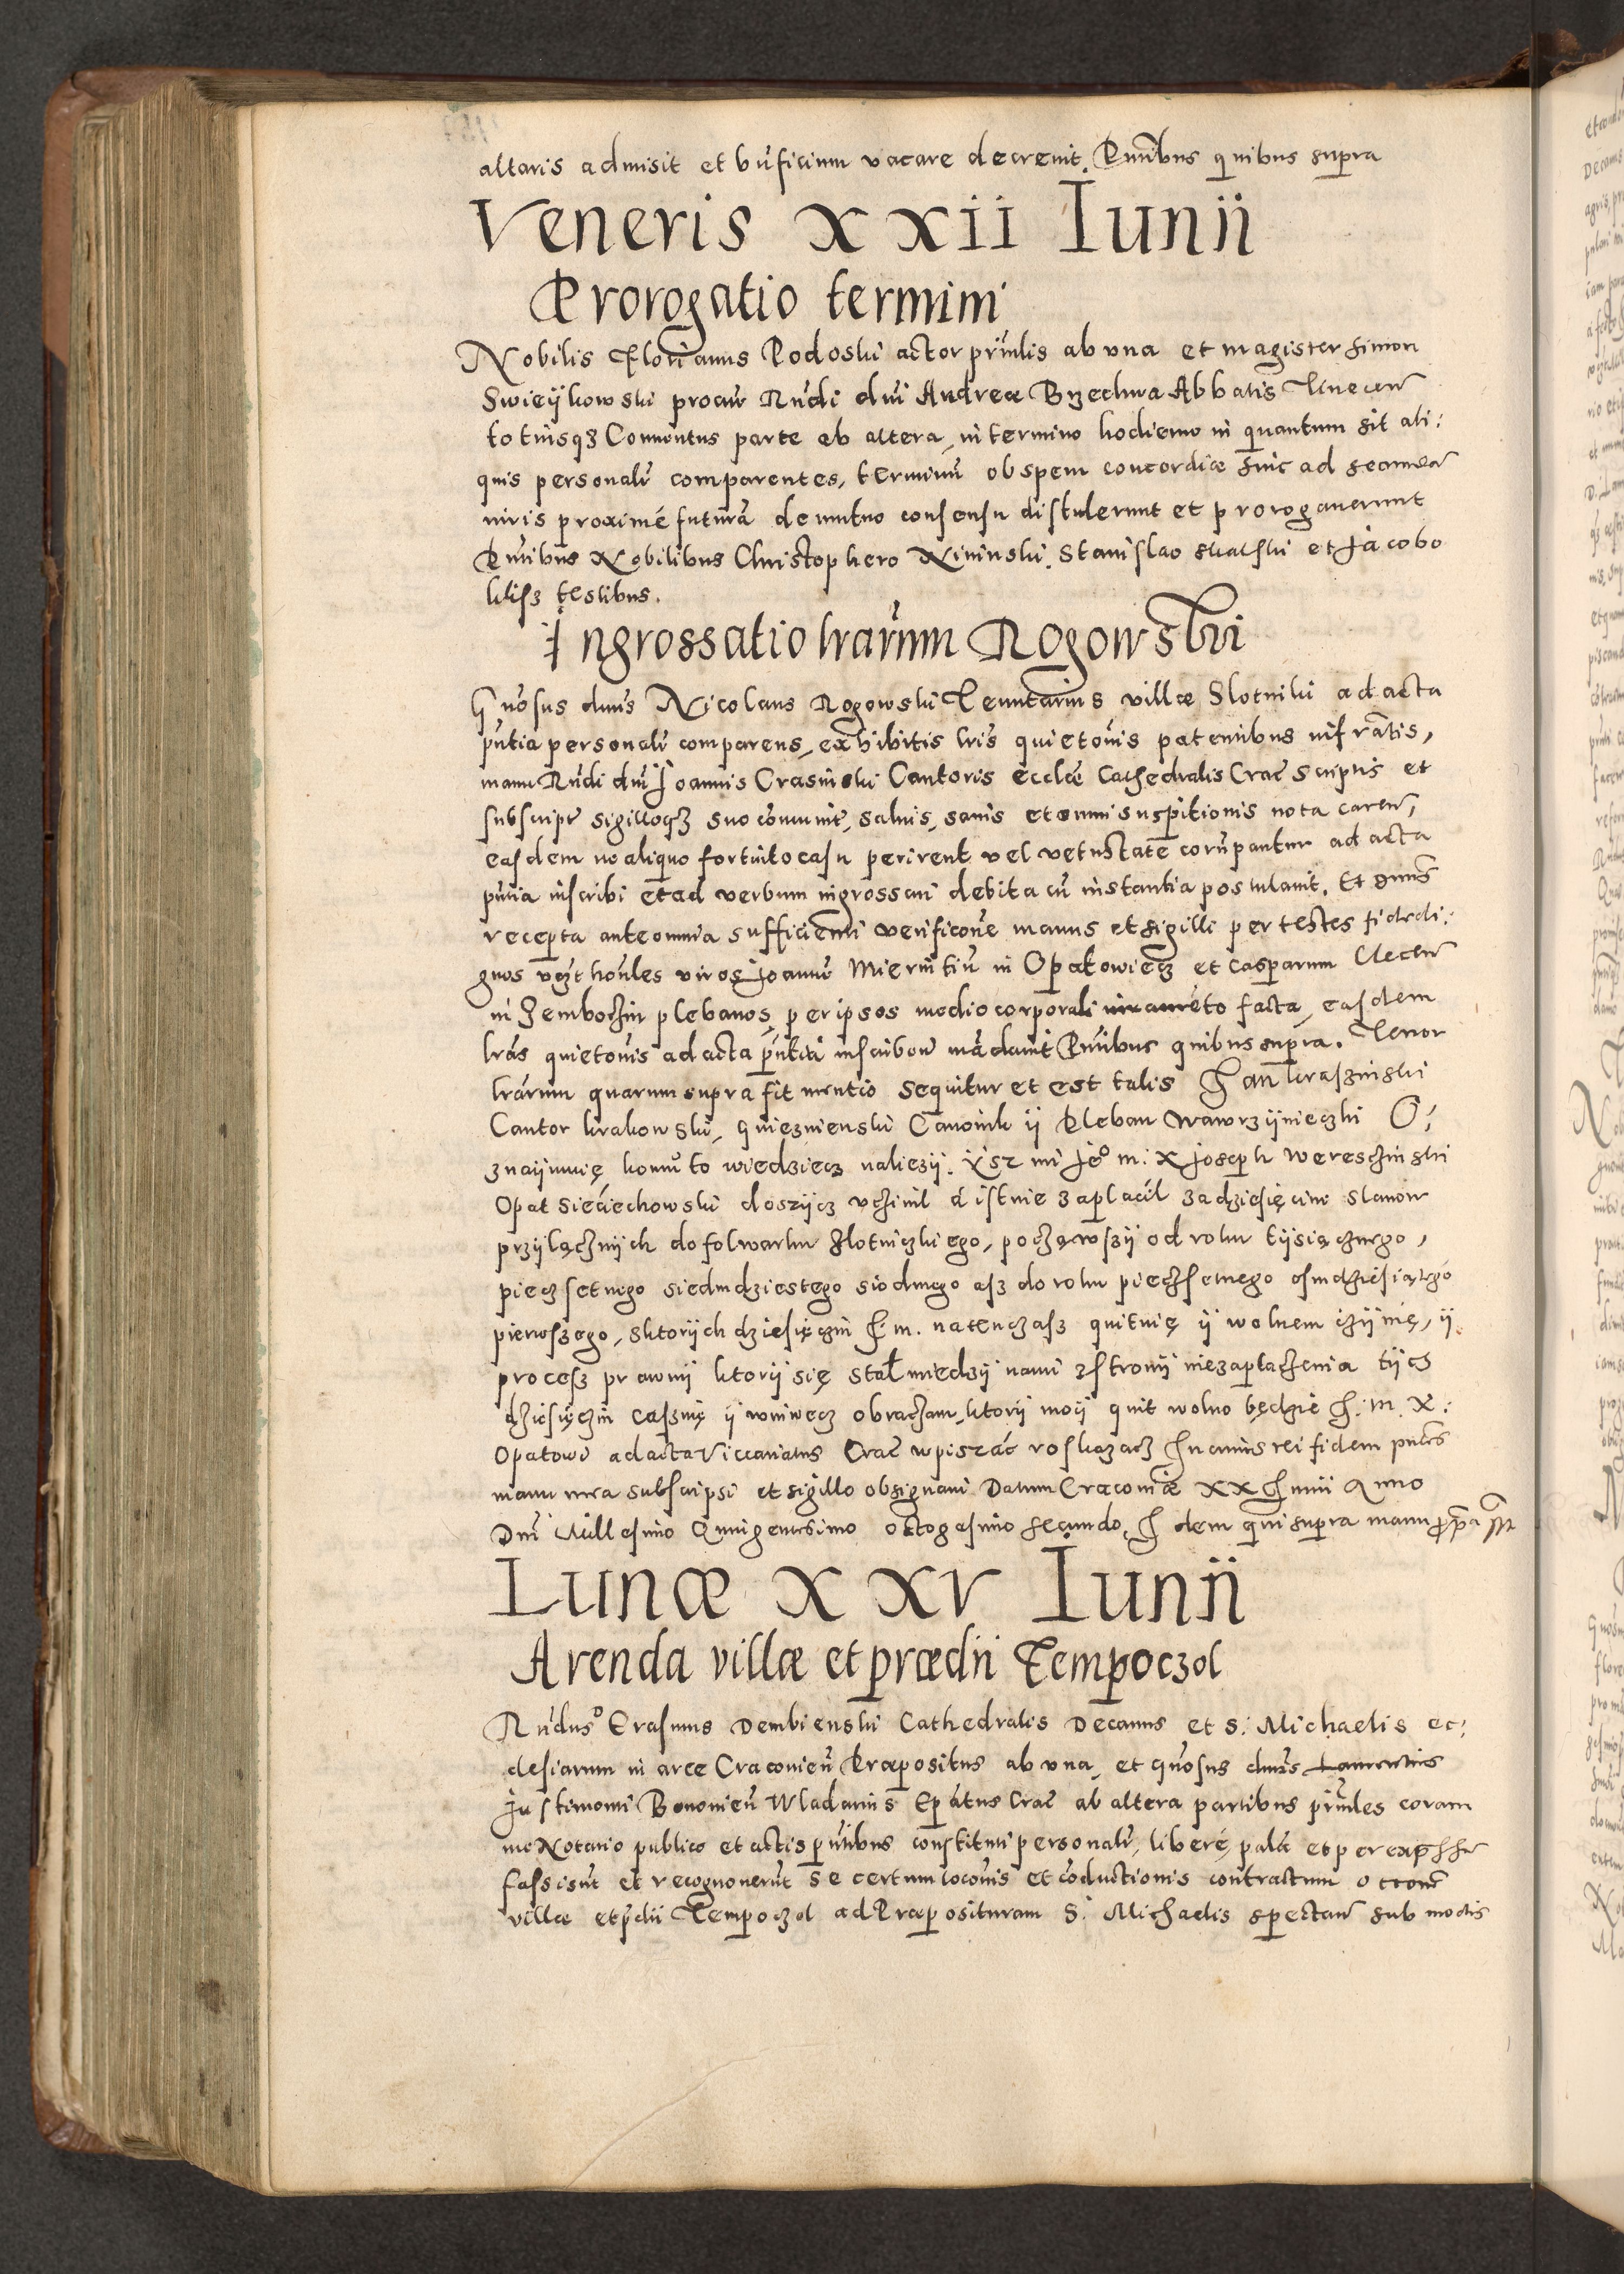 altaris admisit et bn̄ficium vacare decrevit. Pn̄tibus quibus supra
Veneris XXII Iunii
Prorogatio termini
Nobilis Florianus Podoski actor prin̄lis ab una et magister Simon
Swieykowski procur̄ Rn̄di dn̄i Andreæ Brzechwa Abbatis Tinecen̄
totiusq3 Conventus parte ab altera, in termino hodierno in quantum sit ali:
quis personalr̄ comparentes, terminū ob spem concordiæ hinc ad
niris proximé futurā de mutuo consensu distulerunt et prorogaverunt
Pn̄tibus Nobilibus Christophero Xininski, Stanislao skalski et Jacobo
klisz testibus.
Ingrossatio lrārum Rogowski
Gn̄osus dnūs Nicolaus Rogowski Tenutarius villæ Slotniki ad acta
pn̄tia personalr̄ comparens, exhibitis lrīs quietōnis patentibus infrāptis,
manu Rn̄di dn̄i Joannis Crasinski Cantoris ecclæ Cathedralis Crac̄ scriptis et
subscript̄ sigilloq3 suo cōmunit̄, salvis, sanis et omni suspitionis nota caren̄,
easdem ne aliquo fortuito casu perirent vel vetustate corrūpantur ad acta
pn̄tia inscribi et ad verbum ingrossari debita cū instantia postulavit. Et dnūs
recepta ante omnia sufficienti verificōne manus et sigilli per testes fidedi:
gnos vz̄t honl̄es viros Joannē Miernikiū in Opatowiecz et Casparum Clecen̄
in Zemboczin plebanos, per ipsos medio corporali iuramēto facta, easdem
lrās quietōnis ad acta pn̄tia inscribere mādavit Pn̄tibus quibus supra. Tenor
lrārum quarum supra fit mentio sequitur et est talis Jan kraszinski
Cantor krakowski, Gnieznienski Canonik ij Pleban Wawrzijnieczki O:
znaijmuię komū to wiedziecz należij. Ysz mi Jeº m: X Joseph Wereschinski
Opat Sieciechowski doszijcz uczinil á istnie zaplacil za dziesięcine slanow
przijlęcznijch do folwarku zlotniczkiego, poczęwszij od roku tijsięcznego,
pieczsetnego siedmdziestego siodmego asz do roku pieczsetnego osmdziesiątego
pierwszego, sktorijch dziesięczin J: m. natenczasz quituię ij wolnem czijnię, ij
procesz prawnij ktorij się stał miedzij nami zstronij niezaplaczenia tijch
dziesięczin caszuię ij wniwecz obraczam, ktorij moij quit wolno będzie J: m. X:
Opatowi ad acta Viccariatus Crac̄ wpiszać roskazacz In cuius rei fidem pn̄tes
manu mea subscripsi et sigillo obsignavi Datum Cracoviæ XX Junii Anno
Dnī Millesimo Quingentesimo octogesimo secundo, Idem qui supra manu ppa
Lunæ XXV Iunii
Arenda villæ et prædii Tempoczol
Rn̄dus Erasmus Dembienski Cathedralis Decanus et S: Michaelis ec:
clesiarum in arce Cracovien̄ Præpositus ab una, et gn̄osus dnūs Laurentius
Justimonti Bononien̄ Wladarius Epātus Crac̄ ab altera partibus prin̄les coram
me Notario publico et actis pn̄tibus constituti personalr̄, liberé, palā et per
fassi sūt et recognoverūt se certum locōnis et cōductionis contractum
villæ et pdii Tempoczol ad Præposituram S: Michaelis spectan̄ sub modis